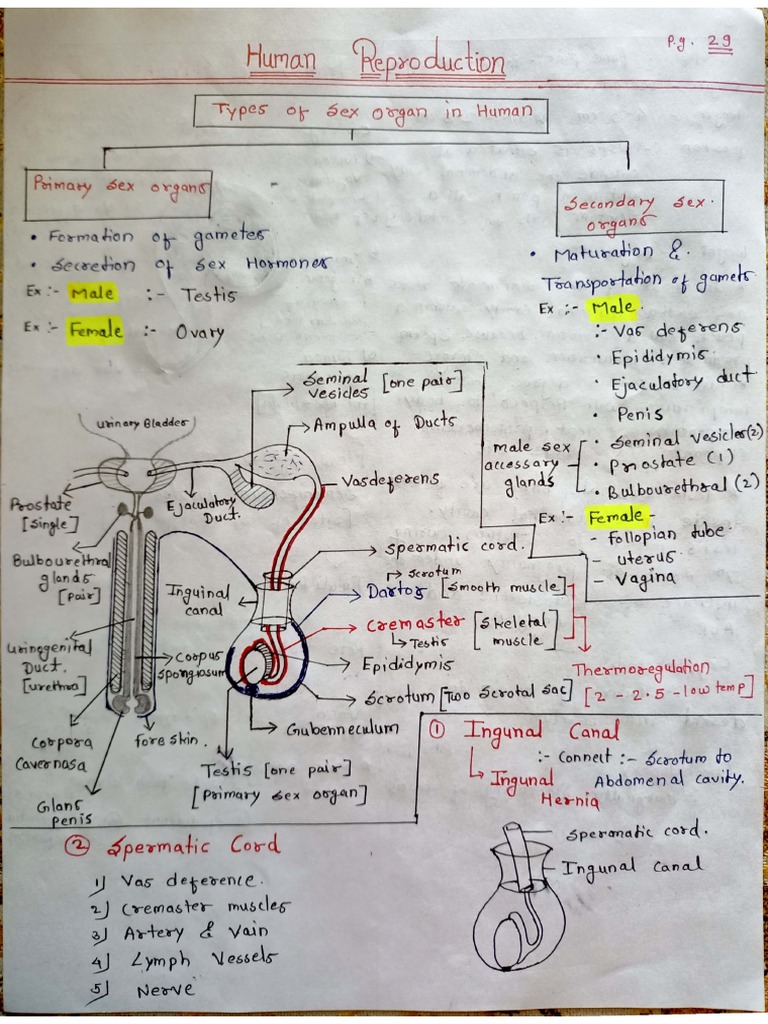 P.g. 29
Human Reproduction
Types of Sex Organ in Human
Primary Sex organs
• Formation of gametes
• Secretion of Sex Hormones
Ex :- Male :- Testis
Ex :- Female :- Ovary
Secondary Sex.
organs
• Maturation &
Transportation of gamets
Ex :- Male.
:- Vas deferens
• Epididymis
• Ejaculatory duct
• Penis
male sex
accessary
glands
• Seminal Vesicles(2)
• Prostate (1)
• Bulbourethral (2)
Ex :- Female -
- Follopian tube
- uterus
- Vagina
Seminal
vesicles [one pair]
Ampulla of Ducts
Vasdeferens
urinary Bladder
Ejaculatory
Duct.
Prostate
[Single]
Bulbourethral
glands
[pair]
Urinogenital
Duct.
[urethra]
Corpora
Cavernasa
Glans
penis
fore skin.
Corpus
spongiosum
Inguinal
canal
spermatic cord.
Scrotum
Dartos [Smooth muscle]
Cremaster [Skeletal
muscle]
Testis
Epididymis
Scrotum [Two Scrotal Sac]
Gubenneculum
Testis [one pair]
[Primary Sex organ]
Thermoregulation
[2 - 2.5 - low temp]
① Ingunal Canal
:- Connect :- Scrotum to
Abdomenal cavity.
Ingunal
Hernia
Sperematic cord.
Ingunal Canal
② Spermatic Cord
1) Vas deference.
2) Cremaster muscles
3) Artery & Vain
4) Lymph Vessels
5) Nerve